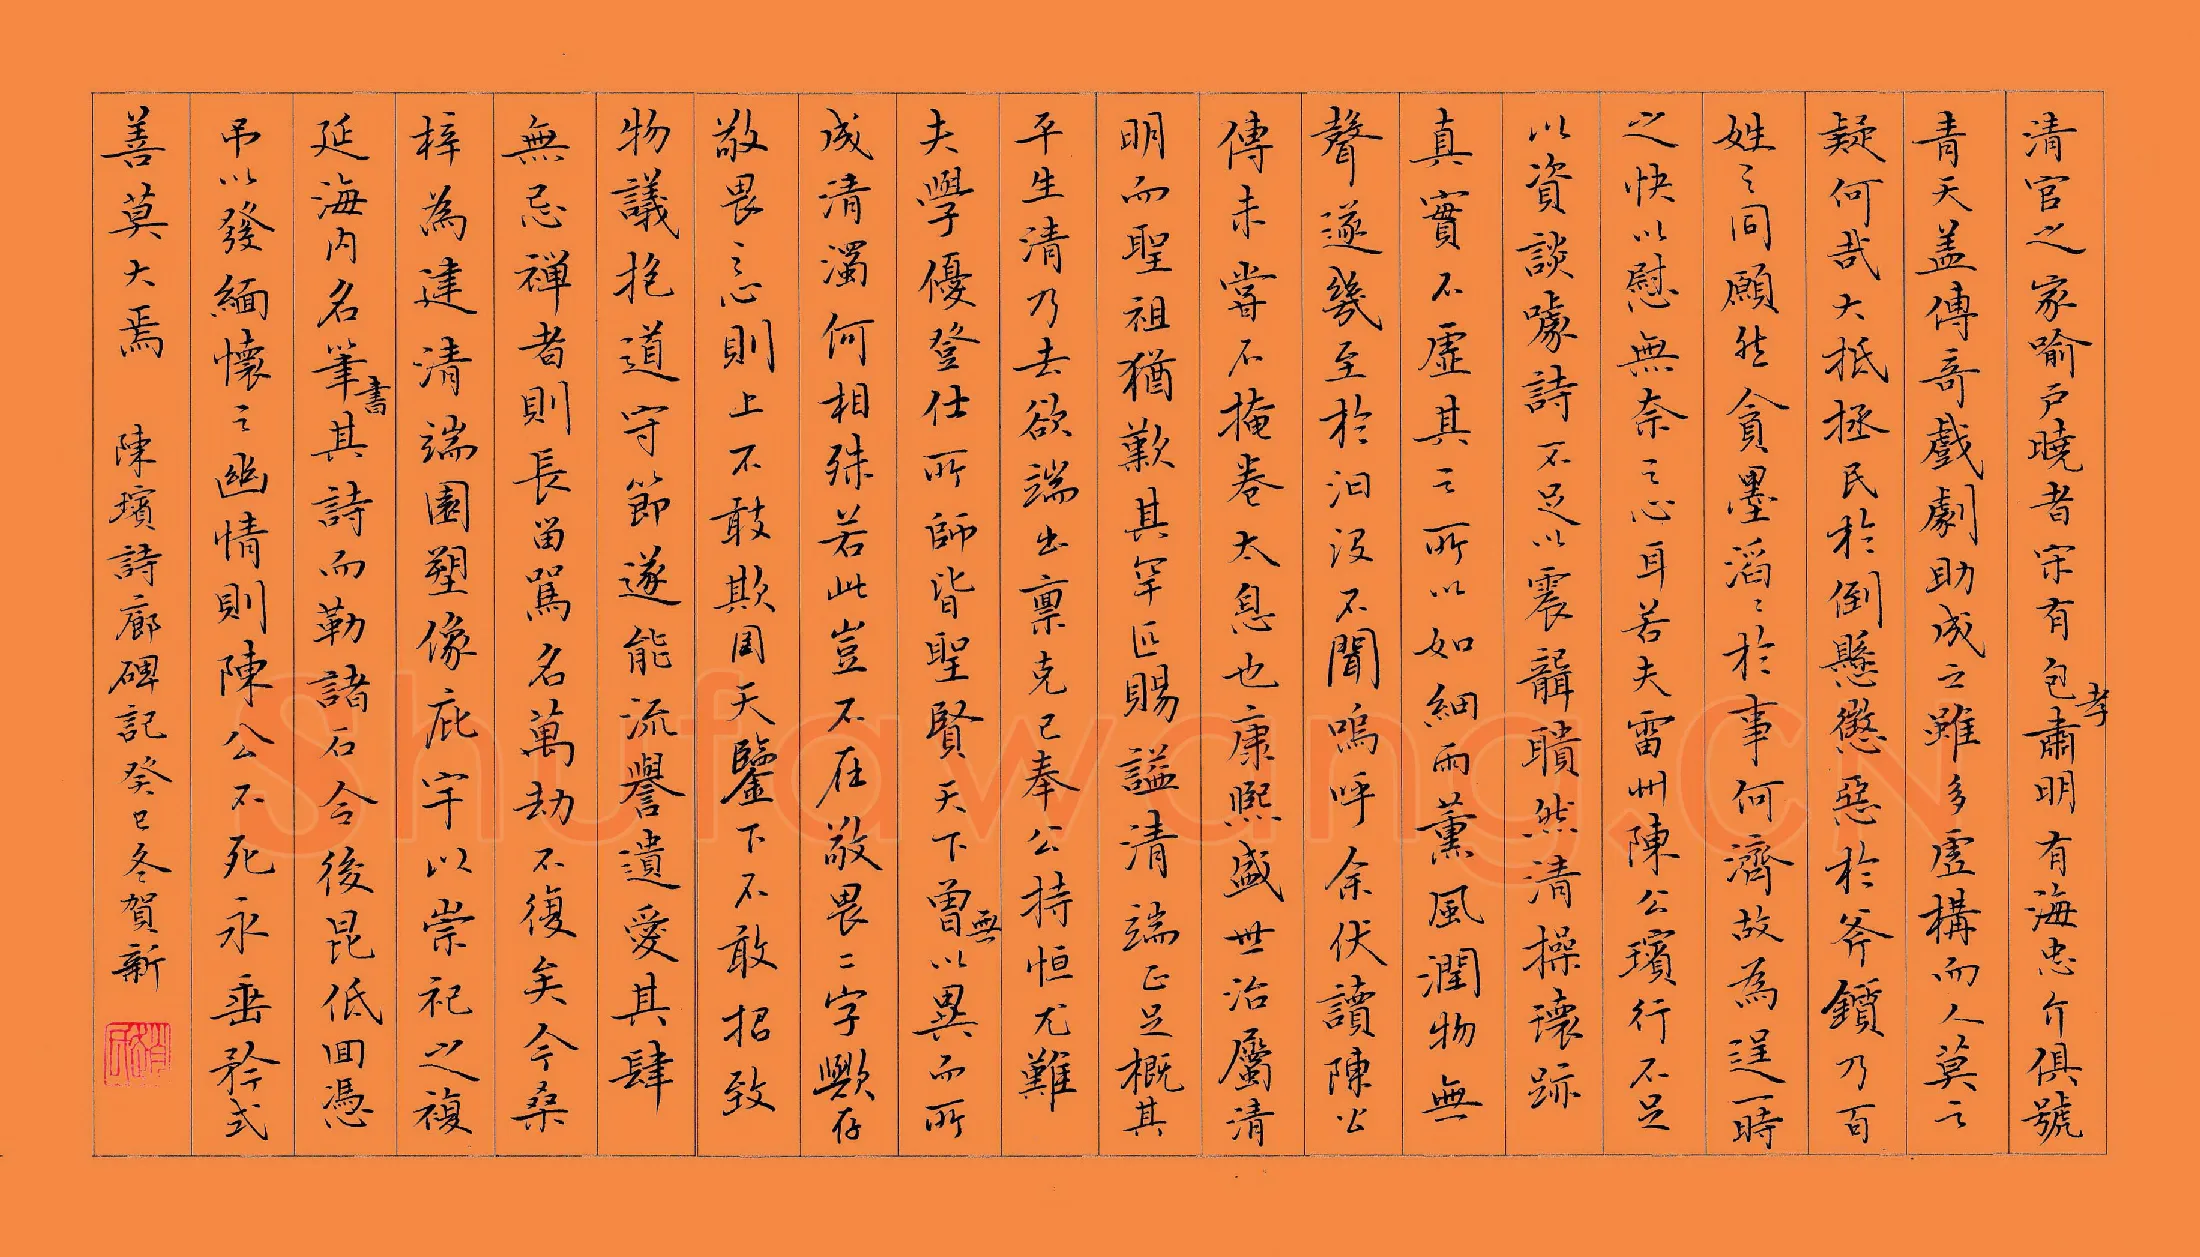 清官之家喻戶曉者宋有包孝肅明有海忠介俱號
青天盖傳奇戲劇助成之雖多虛構而人莫之
疑何哉大抵拯民於倒懸懲惡於斧鑕乃百
姓之同願然貪墨滔滔於事何濟故為逞一時
之快以慰無奈之心耳若夫雷州陳公璸行不足
以資談噱詩不足以震聾聵然清操瓌跡
真實不虛其之所以如細雨薰風潤物無
聲遂幾至於汩没不聞嗚呼余伏讀陳公
傳未嘗不掩卷太息也康熙盛世治屬清
明而聖祖猶歎其罕匹賜謚清端正足概其
平生清乃去欲端出稟克己奉公持恒尤難
夫學優登仕所師皆聖賢天下曾無以異而所
成清濁何相殊若此豈不在敬畏二字歟存
敬畏之心則上不敢欺罔天鑒下不敢招致
物議抱道守節遂能流譽遺愛其肆
無忌禅者則長留罵名萬劫不復矣今桑
梓為建清端園塑像庇宇以崇祀之複
延海内名筆書其詩而勒諸石令後昆低回憑
弔以發緬懷之幽情則陳公不死永垂矜式
善莫大焉 陳璸詩廊碑記癸巳冬賀新
Shufawang.CN